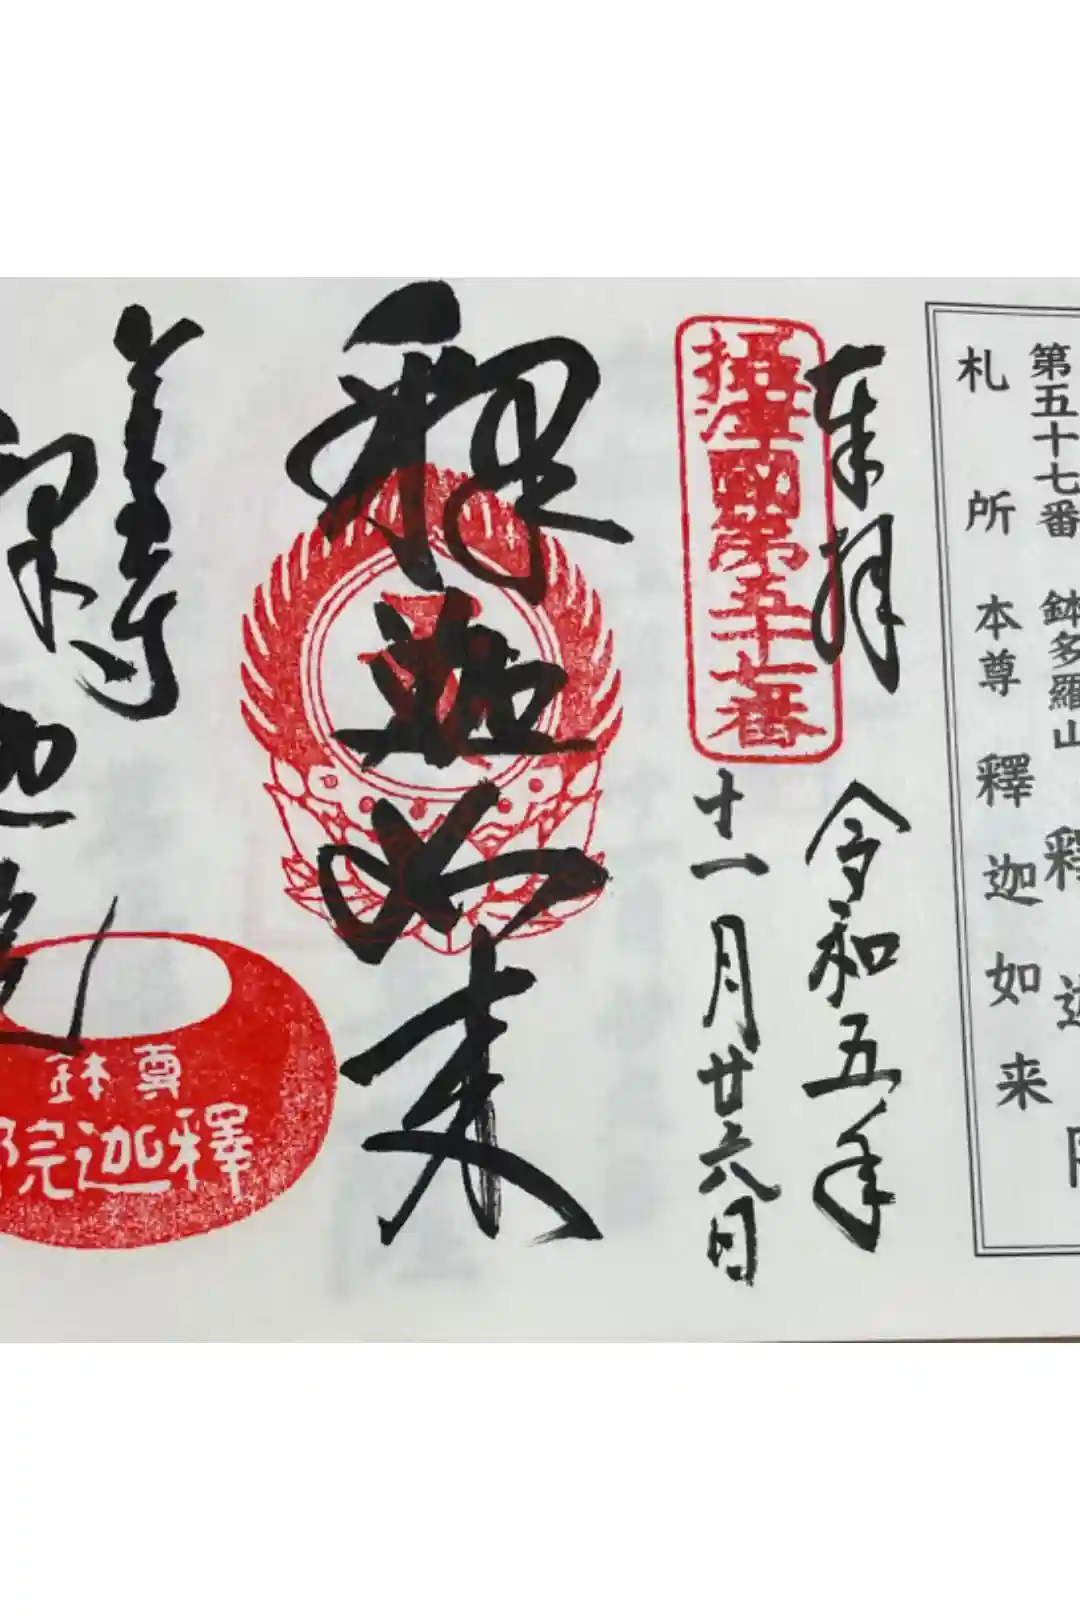 第五十七番 鉢多羅山 釋迦
札所 本尊 釋迦如来
奉拝
令和五年
摂津國第五十七番
十一月廿六日
釋迦如来
尊鉢
釋迦院
釋迦院